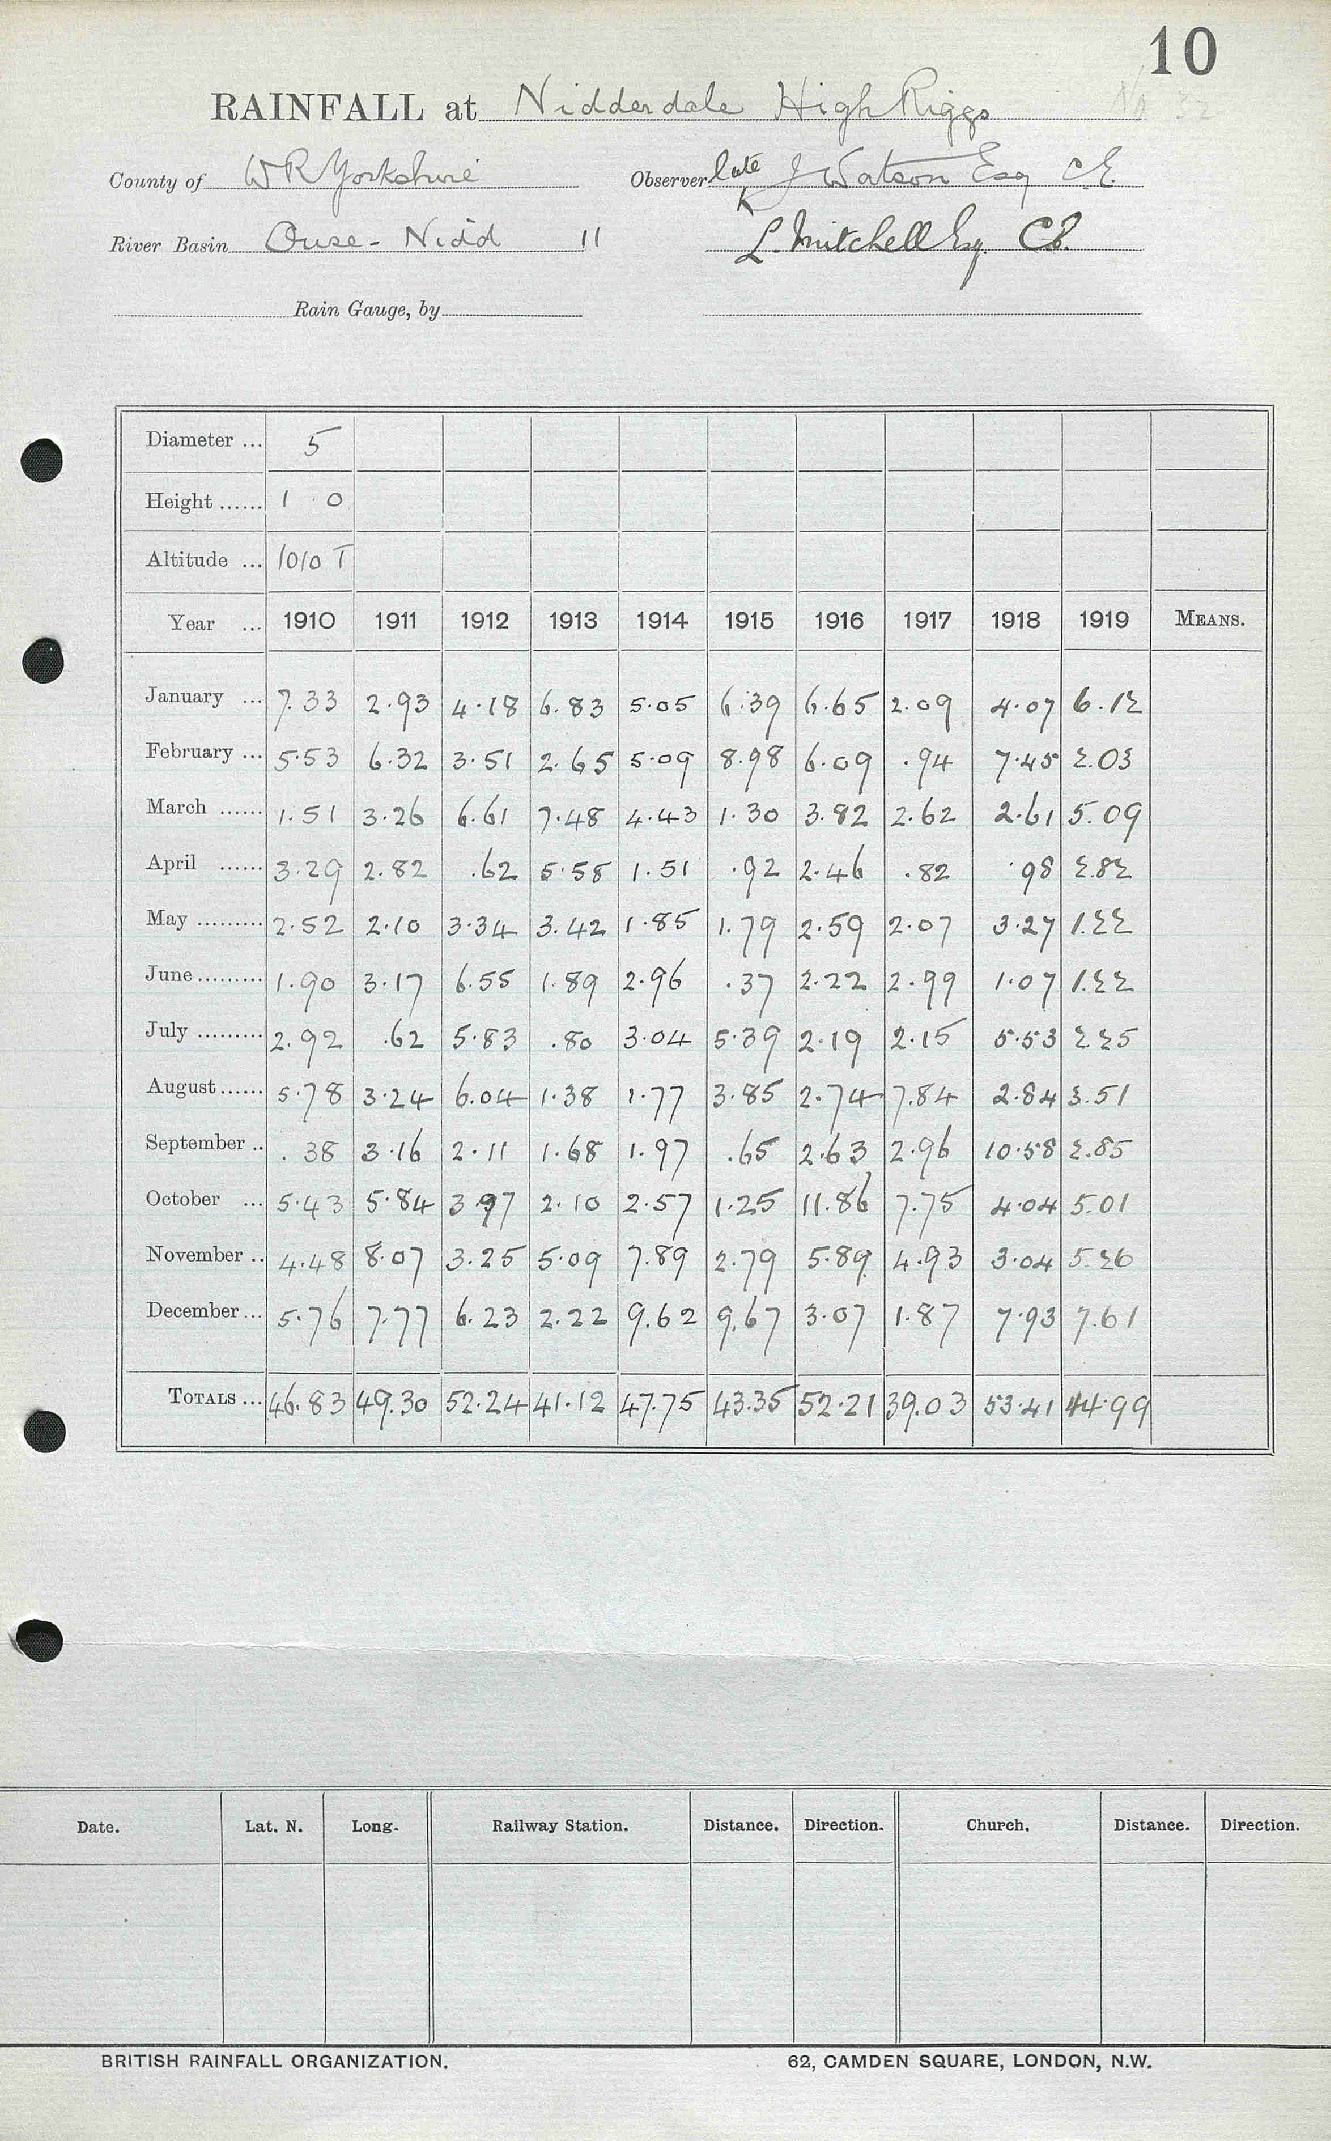 10
RAINFALL at Nidderdale High Riggs No 32
County of W R Yorkshire Observer late J Watson Esq C.E.
River Basin Ouse - Nidd 11 L. Mitchell Esq. C.E.
Rain Gauge, by
Diameter ... 5
Height ...... 1 0
Altitude ... 1010 T
Year ... 1910 1911 1912 1913 1914 1915 1916 1917 1918 1919 MEANS.
January ... 7.33 2.93 4.18 6.83 5.05 6.39 6.65 2.09 4.07 6.12
February ... 5.53 6.32 3.51 2.65 5.09 8.98 6.09 .94 7.45 2.03
March ...... 1.51 3.26 6.61 7.48 4.43 1.30 3.82 2.62 2.61 5.09
April ...... 3.29 2.82 .62 5.58 1.51 .92 2.46 .82 .98 2.82
May ......... 2.52 2.10 3.34 3.42 1.85 1.79 2.59 2.07 3.27 1.22
June ......... 1.90 3.17 6.55 1.89 2.96 .37 2.22 2.99 1.07 1.22
July ......... 2.92 .62 5.83 .80 3.04 5.39 2.19 2.15 5.53 2.25
August ...... 5.78 3.24 6.04 1.38 1.77 3.85 2.74 7.84 2.84 3.51
September .. .38 3.16 2.11 1.68 1.97 .65 2.63 2.96 10.58 2.85
October ... 5.43 5.84 3.97 2.10 2.57 1.25 11.86 7.75 4.04 5.01
November .. 4.48 8.07 3.25 5.09 7.89 2.79 5.89 4.93 3.04 5.26
December ... 5.76 7.77 6.23 2.22 9.62 9.67 3.07 1.87 7.93 7.61
TOTALS ... 46.83 49.30 52.24 41.12 47.75 43.35 52.21 39.03 53.41 44.99
Date. Lat. N. Long. Railway Station. Distance. Direction. Church. Distance. Direction.
BRITISH RAINFALL ORGANIZATION. 62, CAMDEN SQUARE, LONDON, N.W.